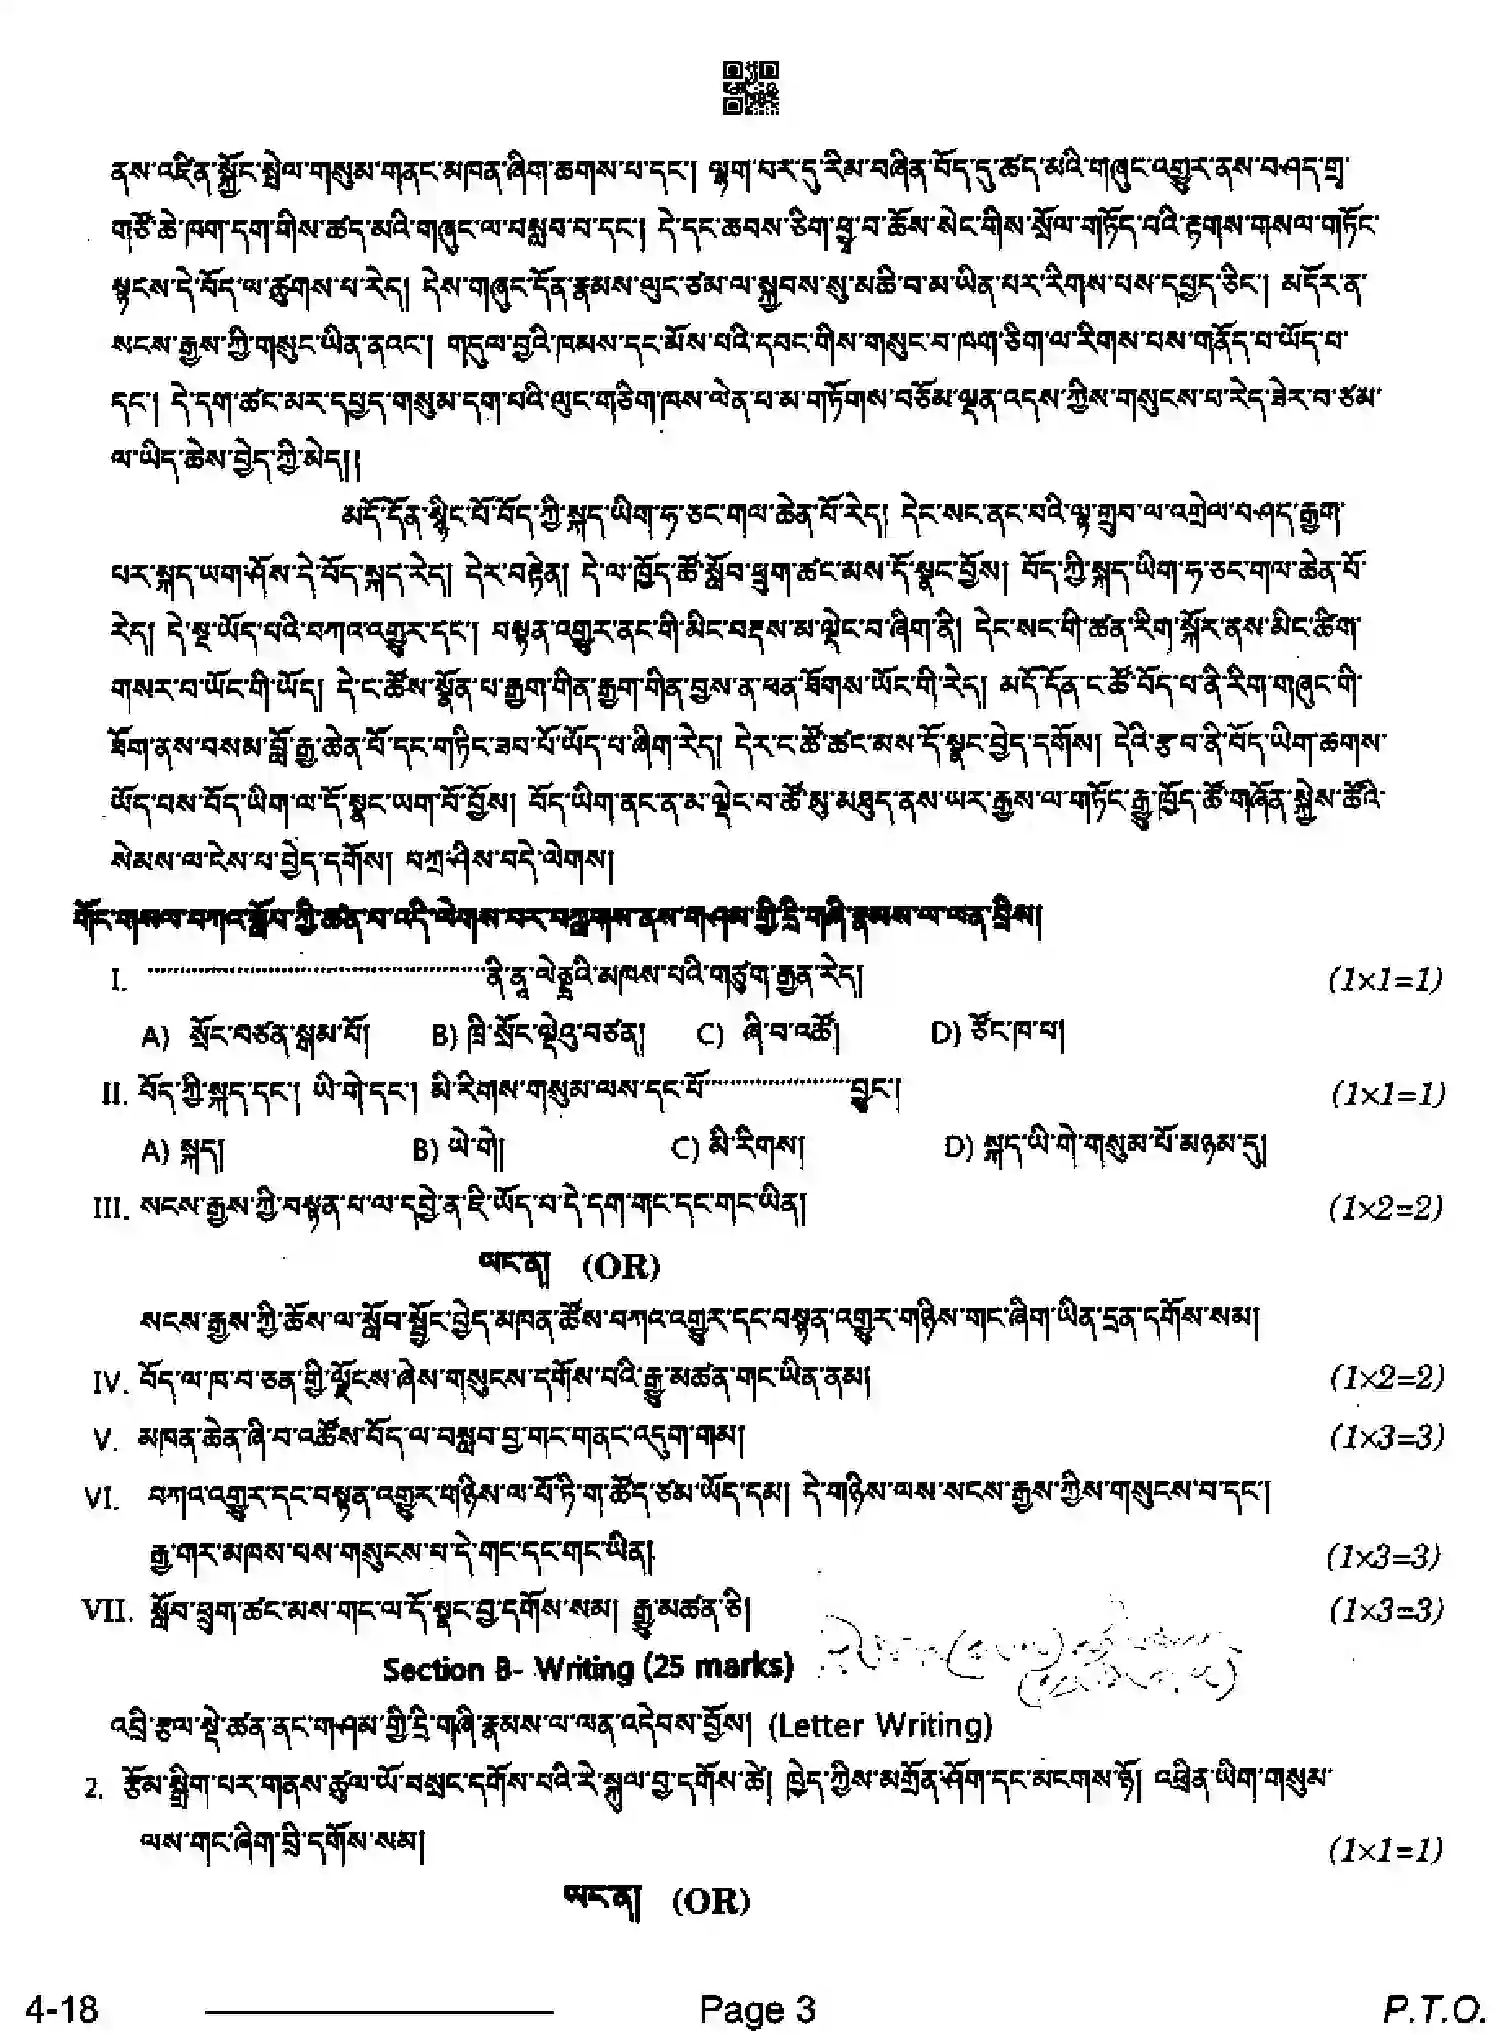 ནས་འཛིན་སྐྱོང་སྤེལ་གསུམ་གནང་མཁན་ཞིག་ཆགས་པ་དང་། ལྷག་པར་དུ་རིམ་བཞིན་བོད་དུ་ཚད་མའི་གཞུང་འགྱུར་ནས་བཤད་གྲྭ་
གཙོ་ཆེ་ཁག་དག་གིས་ཚད་མའི་གཞུང་ལ་བསླབ་བ་དང་། དེ་དང་ཆབས་ཅིག་ཕྱྭ་བ་ཆོས་སེང་གིས་སྲོལ་གཏོད་པའི་རྟགས་གསལ་གཏོང་
སྟངས་དེ་བོད་ལ་ཚུགས་པ་རེད། དེས་གཞུང་དོན་རྣམས་ལུང་ཙམ་ལ་སྐྱབས་སུ་མཆི་བ་མ་ཡིན་པར་རིགས་པས་དཔྱད་ཅིང་། མདོར་ན་
སངས་རྒྱས་ཀྱི་གསུང་ཡིན་ནའང་། གདུལ་བྱའི་ཁམས་དང་མོས་པའི་དབང་གིས་གསུང་བ་ཁག་ཅིག་ལ་རིགས་པས་གནོད་པ་ཡོད་པ་
དང་། དེ་དག་ཚང་མར་དཔྱད་གསུམ་དག་པའི་ལུང་གཅིག་ཁས་ལེན་པ་མ་གཏོགས་བཅོམ་ལྡན་འདས་ཀྱིས་གསུངས་པ་རེད་ཟེར་བ་ཙམ་
ལ་ཡིད་ཆེས་བྱེད་ཀྱི་མེད།།
མདོ་དོན་སྙིང་པོ་བོད་ཀྱི་སྐད་ཡིག་ཧ་ཅང་གལ་ཆེན་པོ་རེད། དེང་སང་ནང་པའི་ལྟ་གྲུབ་ལ་འགྲེལ་བཤད་རྒྱག་
པར་སྐད་ཡག་ཤོས་དེ་བོད་སྐད་རེད། དེར་བརྟེན། དེ་ལ་ཁྱོད་ཚོ་སློབ་ཕྲུག་ཚང་མས་དོ་སྣང་བྱོས། བོད་ཀྱི་སྐད་ཡིག་ཧ་ཅང་གལ་ཆེན་པོ་
རེད། དེ་སྔ་ཡོད་པའི་བཀའ་འགྱུར་དང་། བསྟན་འགྱུར་ནང་གི་མིང་བརྡས་མ་ལྡེང་བ་ཞིག་ནི། དེང་སང་གི་ཚན་རིག་སྐོར་ནས་མིང་ཚིག་
གསར་བ་ཡོང་གི་ཡོད། དེ་ང་ཚོས་སྣོན་པ་རྒྱག་གིན་རྒྱག་གིན་བྱས་ན་ཕན་ཐོགས་ཡོང་གི་རེད། མདོ་དོན་ང་ཚོ་བོད་པ་ནི་རིག་གཞུང་གི་
ཐོག་ནས་བསམ་བློ་རྒྱ་ཆེན་པོ་དང་གཏིང་ཟབ་པོ་ཡོད་པ་ཞིག་རེད། དེར་ང་ཚོ་ཚང་མས་དོ་སྣང་བྱེད་དགོས། དེའི་རྩ་བ་ནི་བོད་ཡིག་ཆགས་
ཡོད་པས་བོད་ཡིག་ལ་དོ་སྣང་ཡག་པོ་བྱོས། བོད་ཡིག་ནང་ན་མ་ལྡེང་བ་ཚོ་སུ་མཐུད་ནས་ཡར་རྒྱས་ལ་གཏོང་རྒྱུ་ཁྱོད་ཚོ་གཞོན་སྐྱེས་ཚོའི་
སེམས་ལ་ངེས་པ་བྱེད་དགོས། བཀྲ་ཤིས་བདེ་ལེགས།
གོང་གསལ་བཀའ་སློབ་ཀྱི་ཚན་པ་འདི་ལེགས་པར་བཀླགས་ནས་གཤམ་གྱི་དྲི་གཞི་རྣམས་ལ་ལན་བྲིས།
I. ........................ནི་ནཱ་ལེནྡྲའི་མཁས་པའི་གཙུག་རྒྱན་རེད། (1×1=1)
A) སྲོང་བཙན་སྒམ་པོ། B) ཁྲི་སྲོང་ལྡེའུ་བཙན། C) ཞི་བ་འཚོ། D) ཙོང་ཁ་པ།
II. བོད་ཀྱི་སྐད་དང་། ཡི་གེ་དང་། མི་རིགས་གསུམ་ལས་དང་པོ............བྱུང་། (1×1=1)
A) སྐད། B) ཡེ་གེ། C) མི་རིགས། D) སྐད་ཡི་གེ་གསུམ་པོ་མཉམ་དུ།
III. སངས་རྒྱས་ཀྱི་བསྟན་པ་ལ་དབྱེ་ན་ཇི་ཡོད་པ་དེ་དག་གང་དང་གང་ཡིན། (1×2=2)
ཡང་ན། (OR)
སངས་རྒྱས་ཀྱི་ཆོས་ལ་སློབ་སྦྱོང་བྱེད་མཁན་ཚོས་བཀའ་འགྱུར་དང་བསྟན་འགྱུར་གཉིས་གང་ཞིག་ཡིན་དྲན་དགོས་སམ།
IV. བོད་ལ་ཁ་བ་ཅན་གྱི་ལྗོངས་ཞེས་གསུངས་དགོས་པའི་རྒྱུ་མཚན་གང་ཡིན་ནམ། (1×2=2)
V. མཁན་ཆེན་ཞི་བ་འཚོས་བོད་ལ་བསླབ་བྱ་གང་གནང་འདུག་གམ། (1×3=3)
VI. བཀའ་འགྱུར་དང་བསྟན་འགྱུར་གཉིས་ལ་པོ་ཏི་ག་ཚོད་ཙམ་ཡོད་དམ། དེ་གཉིས་ལས་སངས་རྒྱས་ཀྱིས་གསུངས་བ་དང་།
རྒྱ་གར་མཁས་པས་གསུངས་པ་དེ་གང་དང་གང་ཡིན། (1×3=3)
VII. སློབ་ཕྲུག་ཚང་མས་གང་ལ་དོ་སྣང་བྱ་དགོས་སམ། རྒྱུ་མཚན་ཅི། (1×3=3)
Section B- Writing (25 marks)
འབྲི་རྩལ་སྡེ་ཚན་ནང་གཤམ་གྱི་དྲི་གཞི་རྣམས་ལ་ལན་འདེབས་བྱོས། (Letter Writing)
2. རྩོམ་སྒྲིག་པར་གནས་ཚུལ་ཡོ་བསྲང་དགོས་པའི་རེ་སྐུལ་བྱ་དགོས་ཚེ། ཁྱེད་ཀྱིས་མགྲོན་ཤོག་དང་མངགས་ཉོ། འཕྲིན་ཡིག་གསུམ་
ལས་གང་ཞིག་བྲི་དགོས་སམ། (1×1=1)
ཡང་ན། (OR)
4-18 Page 3 P.T.O.